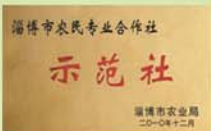 淄博市农民专业合作社
示范社
淄博市农业局
二〇一〇年十二月